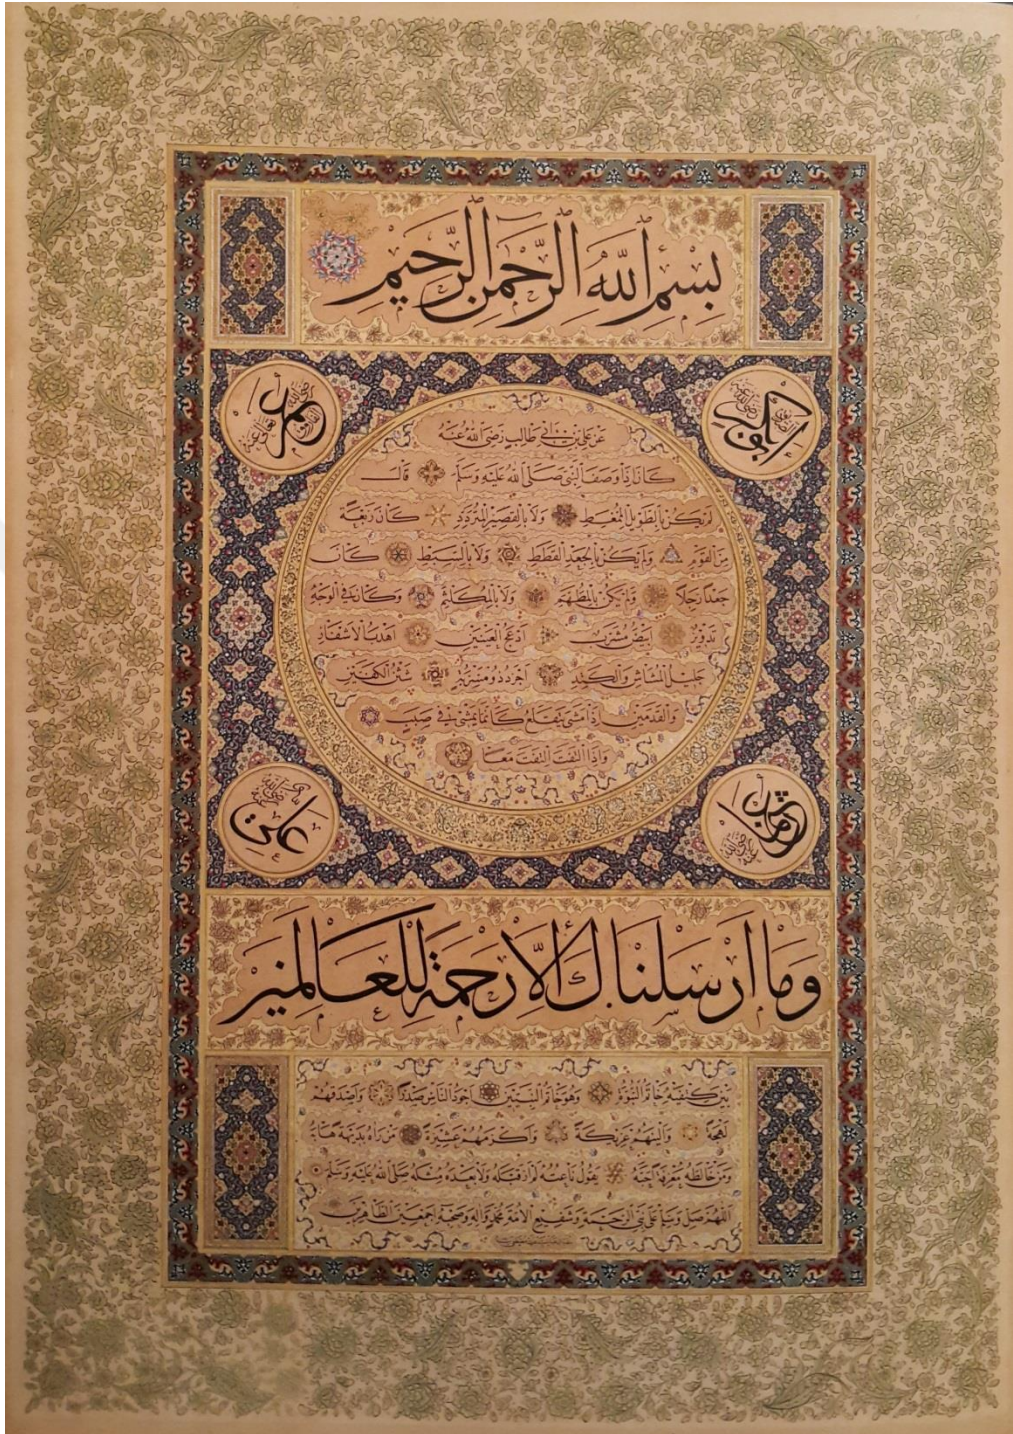 بِسْمِ اللهِ الرَّحْمٰنِ الرَّحِيمِ
ابوبكر رضي الله عنه
عمر الفاروق رضي الله تعالى عنه
عن علي بن ابي طالب رضي الله عنه
كان اذا وصف النبي صلى الله عليه وسلم قال
لم يكن بالطويل الممغط ولا بالقصير المتردد كان ربعة
من القوم ولم يكن بالجعد القطط ولا بالسبط كان
جعدا رجلا ولم يكن بالمطهم ولا بالمكلثم وكان في الوجه
تدوير ابيض مشرب ادعج العينين اهدب الاشفار
جليل المشاش والكتد اجرد ذو مسربة شثن الكفين
والقدمين اذا مشى يتقلع كانما يمشي في صبب
واذا التفت التفت معا
عثمان رضي الله عنه
علي رضي الله عنه
وَمَا اَرْسَلْنَاكَ اِلَّا رَحْمَةً لِلْعَالَمِينَ
بين كتفيه خاتم النبوة وهو خاتم النبيين اجود الناس صدرا واصدقهم
لهجة والينهم عريكة واكرمهم عشيرة من رآه بديهة هابه
ومن خالطه معرفة احبه يقول ناعته لم ار قبله ولا بعده مثله صلى الله عليه وسلم
اللهم صل وسلم على نبي الرحمة وشفيع الامة محمد وآله وصحبه اجمعين الطاهرين